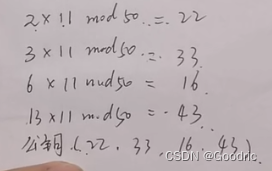 2 × 11 mod 50 = 22
3 × 11 mod 50 = 33
6 × 11 mod 50 = 16
13 × 11 mod 50 = 43
公钥 (22, 33, 16, 43)
CSDN @Goodric